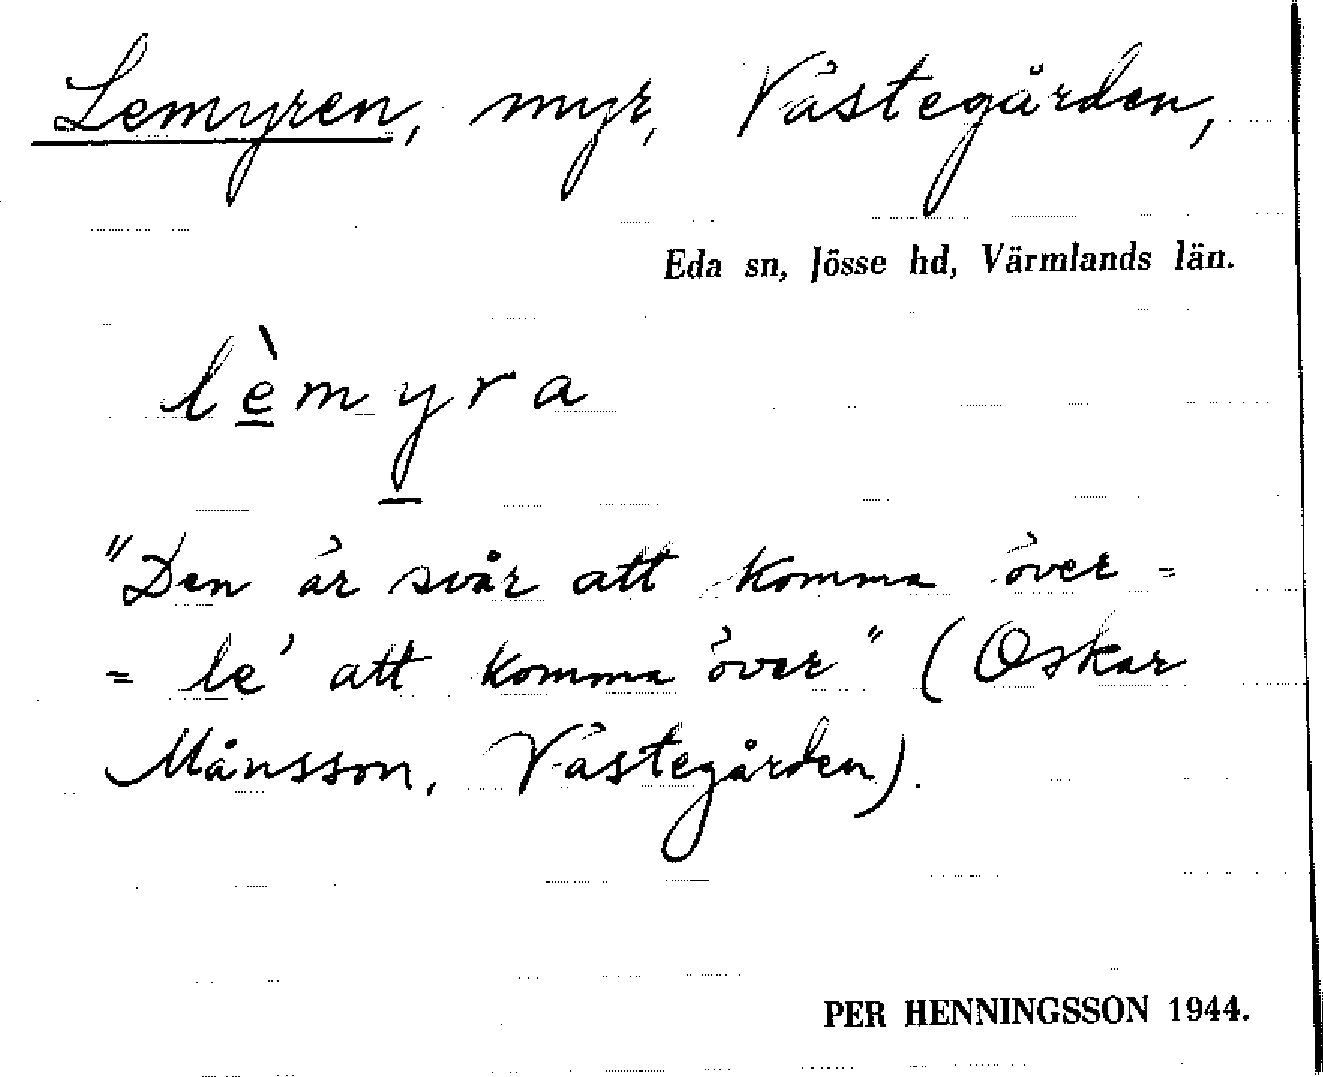 Lemyren, myr, Västegården,
Eda sn, Jösse hd, Värmlands län.
lèmyra
"Den är svår att komma över =
= le' att komma över" (Oskar
Månsson, Västegården).
PER HENNINGSSON 1944.